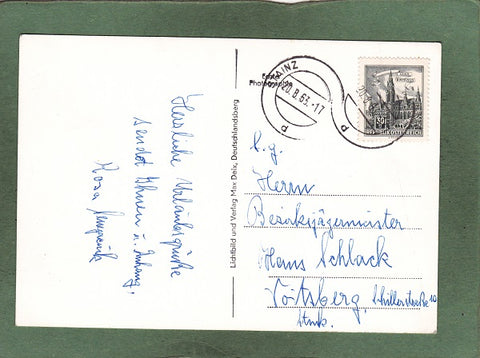 Herzliche Urlaubsgrüße
sendet Ihnen u. Anhang,
Rosa
Lichtbild und Verlag Max Delix, Deutschlandsberg
Echte
Photographie
AINZ
20.8.63.-17
P
P
REPUBLIK ÖSTERREICH
S. g.
Herrn
Bezirksjägermeister
Hans Schlack
Voitsberg, Schillerstraße 10
Stmk.